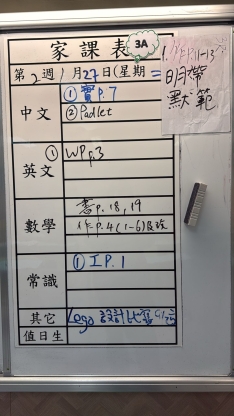 家課表 3A
第2週1月27日(星期二
中文
① 寶P.7
② Padlet
英文
① WP p.3
數學
書p.18,19
作p.4(1-6)及改
常識
① 工P.1
其它
Lego 設計比賽
值日生
P.11-13
明帶
默範